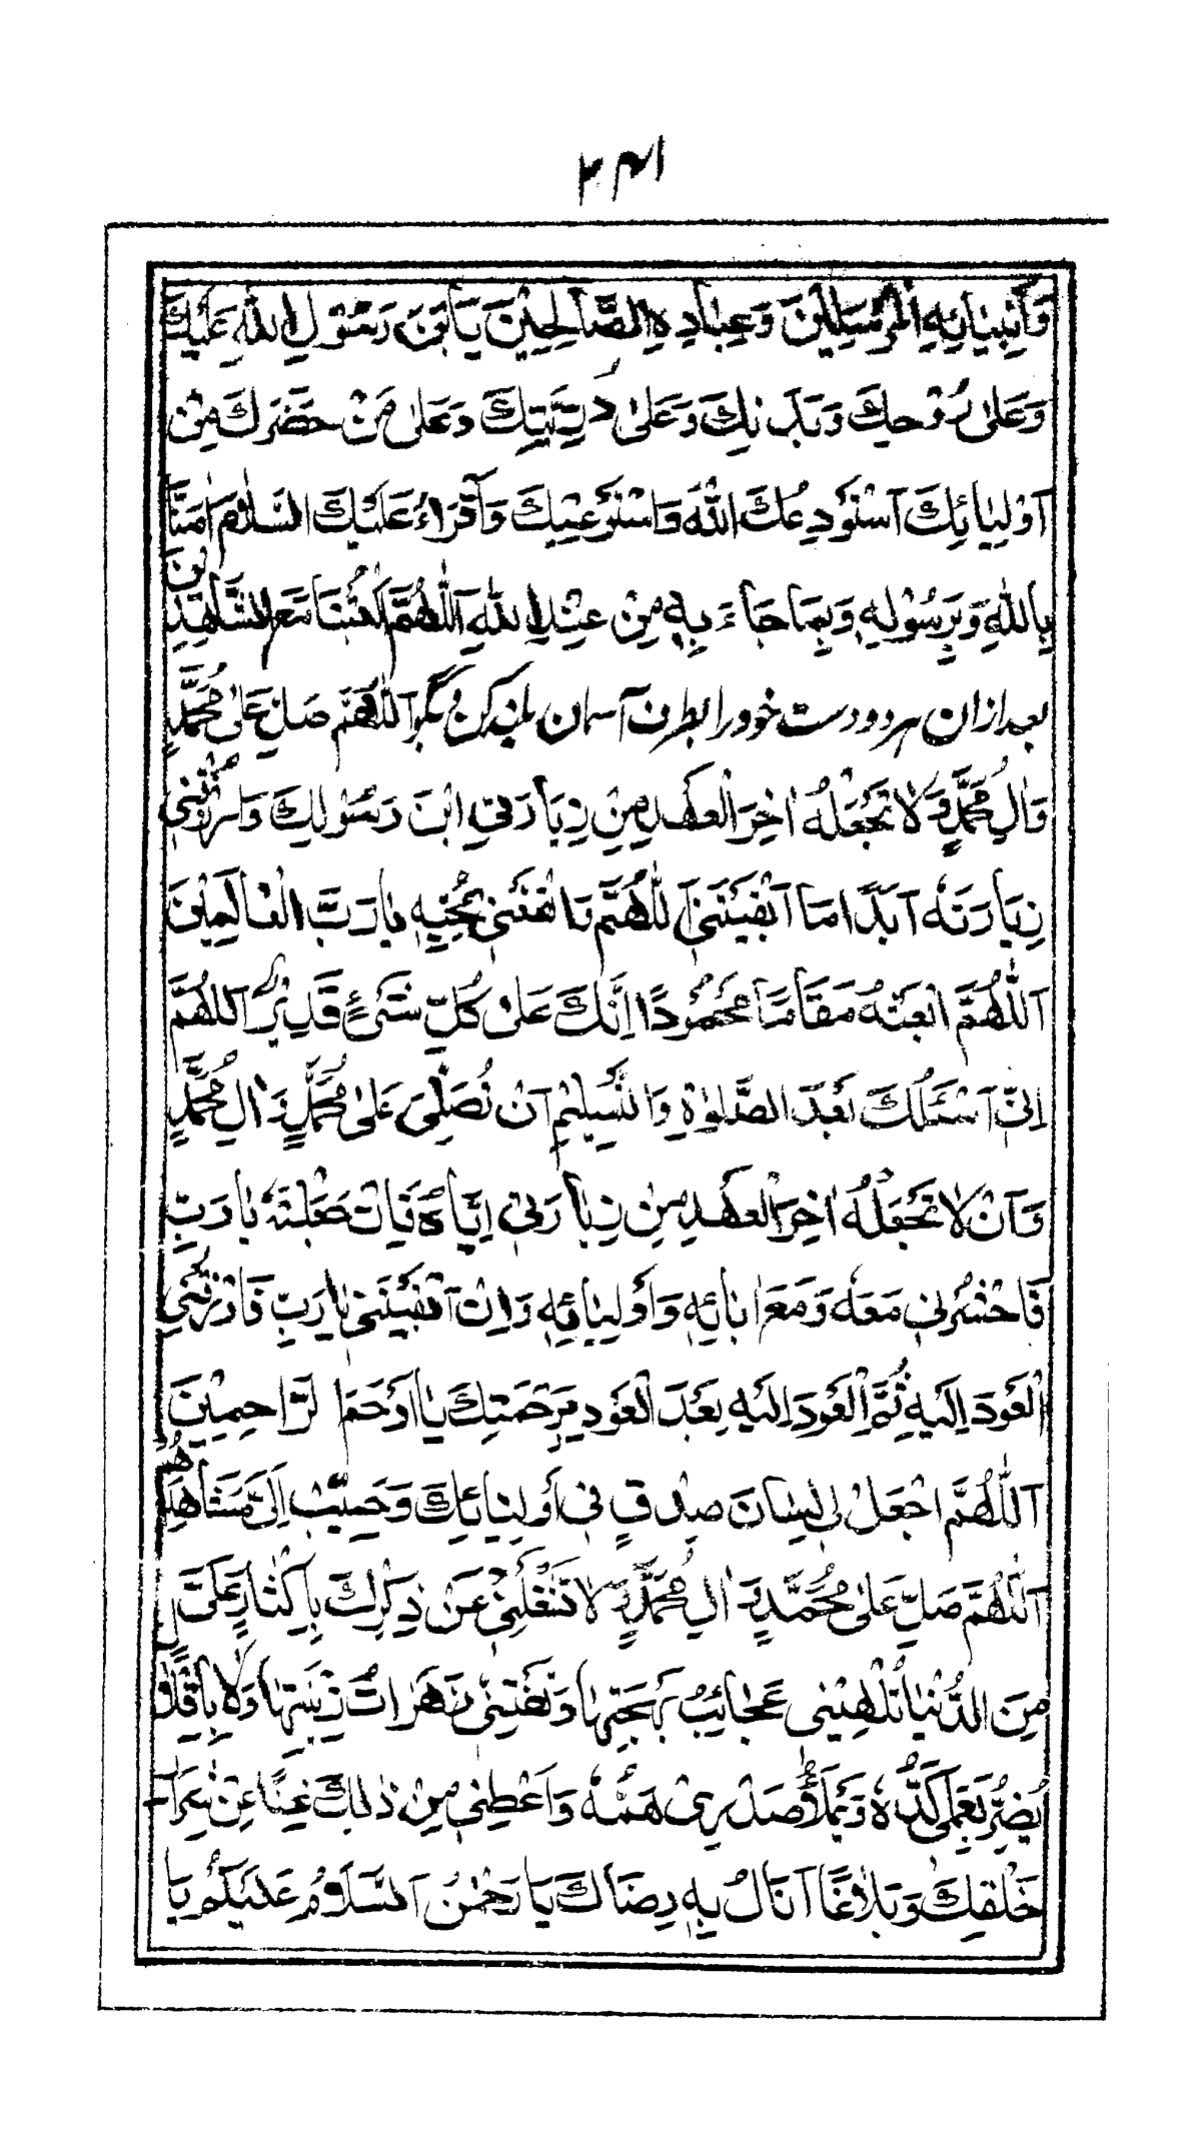 ۲۴۱
وَاَنْبِيَائِهِ الْمُرْسَلِيْنَ وَعِبَادِهِ الصَّالِحِيْنَ يَابْنَ رَسُوْلِ اللّٰهِ عَلَيْكَ
وَعَلٰى رُوْحِكَ وَبَدَنِكَ وَعَلٰى ذُرِّيَّتِكَ وَعَلٰى مَنْ حَضَرَكَ مِنْ
اَوْلِيَائِكَ اَسْتَوْدِعُكَ اللّٰهَ وَاسْتَرْعِيْكَ وَاَقْرَءُ عَلَيْكَ السَّلَامَ اٰمَنَّا
بِاللّٰهِ وَبِرَسُوْلِهٖ وَبِمَا جَاءَ بِهٖ مِنْ عِنْدِ اللّٰهِ اَللّٰهُمَّ اكْتُبْنَا مَعَ الشَّاهِدِيْنَ
بعد ازان هر دو دست خود را بطرف آسمان بلند کن و بگو اَللّٰهُمَّ صَلِّ عَلٰى مُحَمَّدٍ
وَاٰلِ مُحَمَّدٍ وَّلَا تَجْعَلْهُ اٰخِرَ الْعَهْدِ مِنْ زِيَارَتِي ابْنَ رَسُوْلِكَ وَارْزُقْنِيْ
زِيَارَتَهٗ اَبَدًا مَا اَبْقَيْتَنِيْ اَللّٰهُمَّ وَانْفَعْنِيْ بِحُبِّهٖ يَا رَبَّ الْعَالَمِيْنَ
اَللّٰهُمَّ ابْعَثْهُ مَقَامًا مَّحْمُوْدًا اِنَّكَ عَلٰى كُلِّ شَيْءٍ قَدِيْرٌ اَللّٰهُمَّ
اِنِّيْ اَسْئَلُكَ بَعْدَ الصَّلٰوةِ وَالتَّسْلِيْمِ اَنْ تُصَلِّيَ عَلٰى مُحَمَّدٍ وَّاٰلِ مُحَمَّدٍ
وَاَنْ لَا تَجْعَلَهُ اٰخِرَ الْعَهْدِ مِنْ زِيَارَتِيْ اِيَّاهُ فَاِنْ جَعَلْتَهٗ يَا رَبِّ
فَاحْشُرْنِيْ مَعَهٗ وَمَعَ اٰبَائِهٖ وَاَوْلِيَائِهٖ وَاِنْ اَبْقَيْتَنِيْ يَا رَبِّ فَارْزُقْنِيْ
الْعَوْدَ اِلَيْهِ ثُمَّ الْعَوْدَ اِلَيْهِ بَعْدَ الْعَوْدِ بِرَحْمَتِكَ يَا اَرْحَمَ الرَّاحِمِيْنَ
اَللّٰهُمَّ اجْعَلْ لِيْ لِسَانَ صِدْقٍ فِيْ اَوْلِيَائِكَ وَحَبِّبْ اِلَيَّ مَشَاهِدَهُمْ
اَللّٰهُمَّ صَلِّ عَلٰى مُحَمَّدٍ وَّاٰلِ مُحَمَّدٍ وَّلَا تَشْغَلْنِيْ عَنْ ذِكْرِكَ بِاِكْثَارٍ عَلَيَّ
مِنَ الدُّنْيَا تُلْهِيْنِيْ عَجَائِبُ بَهْجَتِهَا وَتَفْتِنُنِيْ زَهَرَاتُ زِيْنَتِهَا وَلَا بِاِقْلَالٍ
يُضِرُّ بِعَمَلِيْ كَدُّهٗ وَيَمْلَأُ صَدْرِيْ هَمُّهٗ وَاَعْطِنِيْ مِنْ ذٰلِكَ غِنًا عَنْ شِرَارِ
خَلْقِكَ وَبَلَاغًا اَنَالُ بِهٖ رِضَاكَ يَا رَحْمٰنُ اَلسَّلَامُ عَلَيْكُمْ يَا